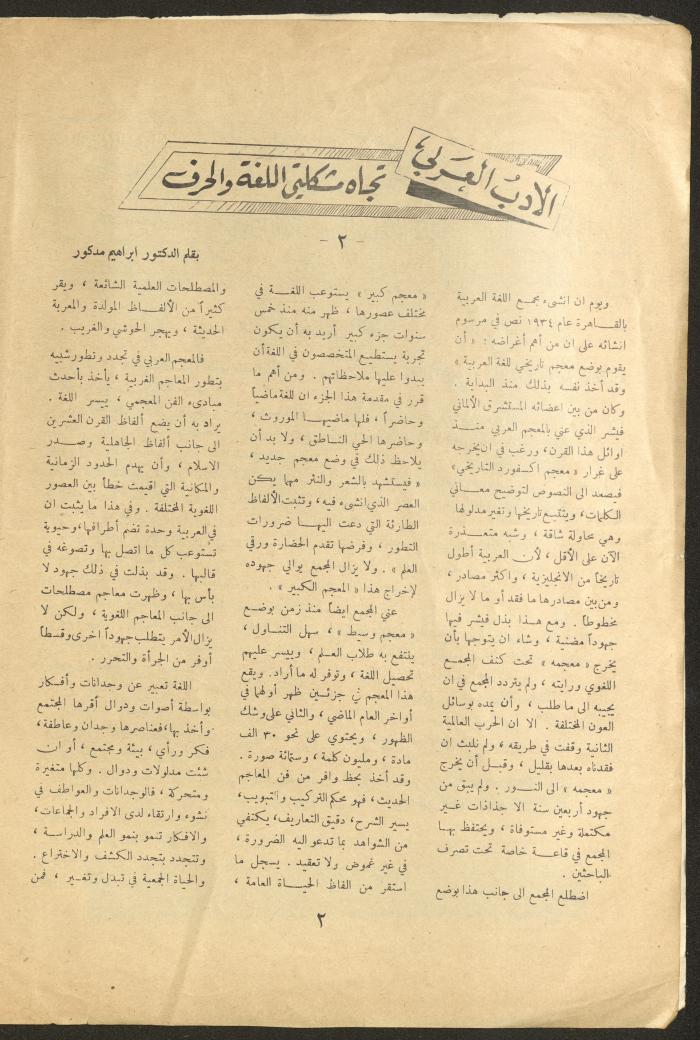 الأدبُ العَربيّ
تجاه مشكلتي اللغة والحرف
- ٢ -
بقلم الدكتور ابراهيم مدكور
ويوم ان انشىء مجمع اللغة العربية
بالقاهرة عام ١٩٣٤ نص في مرسوم
انشائه على ان من أهم أغراضه : « أن
يقوم بوضع معجم تاريخي للغة العربية »
وقد أخذ نفسه بذلك منذ البداية .
وكان من بين اعضائه المستشرق الألماني
فيشر الذي عني بالمعجم العربي منذ
اوائل هذا القرن، ورغب في ان يخرجه
على غرار « معجم اكسفورد التاريخي،
فيصعد الى النصوص لتوضيح معاني
الكلمات، ويتتبع تاريخها وتغير مدلولها
وهي محاولة شاقة ، وشبه متعذرة
الآن على الأقل، لأن العربية أطول
تاريخاً من الانجليزية ، واكثر مصادر ،
ومن بين مصادرها ما فقد أو ما لا يزال
مخطوطاً . ومع هذا بذل فيشر فيها
جهوداً مضنية ، وشاء ان يتوجها بأن
يخرج « معجمه » تحت كنف المجمع
اللغوي ورايته ، ولم يتردد المجمع في ان
يجيبه الى ما طلب ، وأن يمده بوسائل
العون المختلفة . الا ان الحرب العالمية
الثانية وقفت في طريقه ، ولم نلبث ان
فقدناه بعدها بقليل ، وقبل أن يخرج
« معجمه » الى النور . ولم يبق من
جهود أربعين سنة الا جذاذات غير
مكتملة وغير مستوفاة ، ويحتفظ بها
المجمع في قاعة خاصة تحت تصرف
الباحثين .
اضطلع المجمع الى جانب هذا بوضع
« معجم كبير » يستوعب اللغة في
مختلف عصورها ، ظهر منه منذ خمس
سنوات جزء كبير أريد به أن يكون
تجربة يستطيع المتخصصون في اللغة أن
يبدوا عليها ملاحظاتهم . ومن أهم ما
قرر في مقدمة هذا الجزء ان للغة ماضياً
وحاضراً ، فلها ماضيها الموروث ،
وحاضرها الحي الناطق ، ولا بد أن
يلاحظ ذلك في وضع معجم جديد ،
« فيستشهد بالشعر والنثر مهما يكن
العصر الذي انشىء فيه، وتثبت الألفاظ
الطارئة التي دعت اليها ضرورات
التطور ، وفرضها تقدم الحضارة ورقي
العلم » . ولا يزال المجمع يوالي جهوده
لإخراج هذا « المعجم الكبير » .
عني المجمع ايضاً منذ زمن بوضع
« معجم وسيط » ، سهل التناول ،
ينتفع به طلاب العلم ، وييسر عليهم
تحصيل اللغة ، وتوفر له ما أراد. ويقع
هذا المعجم في جزئين ظهر أولهما في
أواخر العام الماضي ، والثاني على وشك
الظهور ، ويحتوي على نحو ٣٠ الف
مادة ، ومليون كلمة ، وستمائة صورة .
وقد أخذ بحظ وافر من فن المعاجم
الحديث، فهو محكم التركيب والتبويب،
يسير الشرح، دقيق التعاريف، يكتفي
من الشواهد بما تدعو اليه الضرورة ،
في غير غموض ولا تعقيد . يسجل ما
استقر من الفاظ الحياة العامة ،
والمصطلحات العلمية الشائعة ، ويقر
كثيراً من الألفاظ المولدة والمعربة
الحديثة ، ويهجر الحوشي والغريب .
فالمعجم العربي في تجدد وتطور شبيه
بتطور المعاجم الغربية ، يأخذ بأحدث
مبادىء الفن المعجمي ، ييسر اللغة .
يراد به أن يضع ألفاظ القرن العشرين
الى جانب ألفاظ الجاهلية وصدر
الاسلام ، وأن يهدم الحدود الزمانية
والمكانية التي اقيمت خطأ بين العصور
اللغوية المختلفة . وفي هذا ما يثبت ان
في العربية وحدة تضم أطرافها، وحيوية
تستوعب كل ما اتصل بها وتصوغه في
قالبها . وقد بذلت في ذلك جهود لا
بأس بها ، وظهرت معاجم مصطلحات
الى جانب المعاجم اللغوية ، ولكن لا
يزال الأمر يتطلب جهوداً اخرى وقسطاً
أوفر من الجرأة والتحرر .
اللغة تعبير عن وجدانات وأفكار
بواسطة أصوات ودوال أقرها المجتمع
وأخذ بها، فعناصرها وجدان وعاطفة،
فكر ورأي ، بيئة ومجتمع ، أو ان
شئت مدلولات ودوال . وكلها متغيرة
ومتحركة ، فالوجدانات والعواطف في
نشوء وارتقاء لدى الافراد والجماعات،
والافكار تنمو بنمو العلم والدراسة ،
وتتجدد بتجدد الكشف والاختراع .
والحياة الجمعية في تبدل وتغير ، فمن
٢